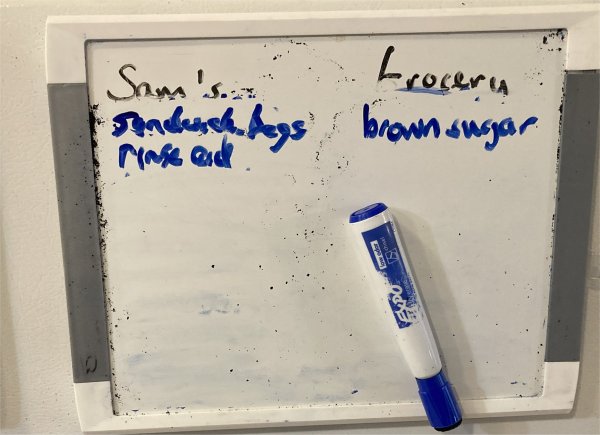 Sam's
sandwich bags
rinse aid
Grocery
brown sugar
EXPO